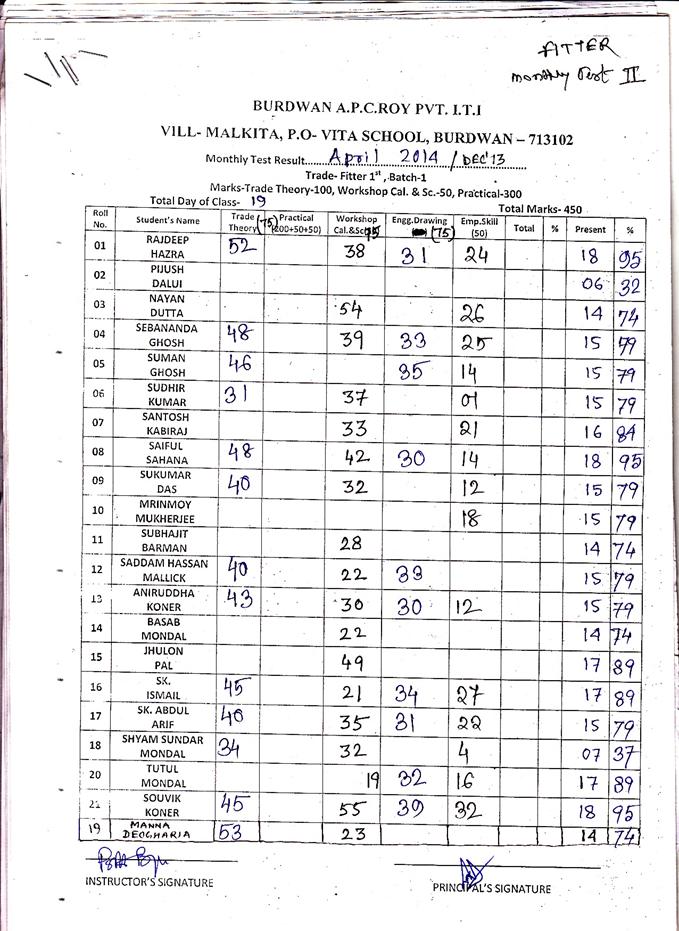 FITTER
Monthly Test II
BURDWAN A.P.C.ROY PVT. I.T.I
VILL- MALKITA, P.O- VITA SCHOOL, BURDWAN – 713102
Monthly Test Result......April 2014 / DEC'13
Trade- Fitter 1st , Batch-1
Marks-Trade Theory-100, Workshop Cal. & Sc.-50, Practical-300
Total Day of Class- 19 Total Marks- 450
Roll No. Student's Name Trade Theory (75) Practical (200+50+50) Workshop Cal.&Sc. 75 Engg.Drawing (75) Emp.Skill (50) Total % Present %
01 RAJDEEP HAZRA 52 38 31 24 18 95
02 PIJUSH DALUI 06 32
03 NAYAN DUTTA 54 26 14 74
04 SEBANANDA GHOSH 48 39 33 25 15 79
05 SUMAN GHOSH 46 35 14 15 79
06 SUDHIR KUMAR 31 37 01 15 79
07 SANTOSH KABIRAJ 33 21 16 84
08 SAIFUL SAHANA 48 42 30 14 18 95
09 SUKUMAR DAS 40 32 12 15 79
10 MRINMOY MUKHERJEE 18 15 79
11 SUBHAJIT BARMAN 28 14 74
12 SADDAM HASSAN MALLICK 40 22 33 15 79
13 ANIRUDDHA KONER 43 30 30 12 15 79
14 BASAB MONDAL 22 14 74
15 JHULON PAL 49 17 89
16 SK. ISMAIL 45 21 34 27 17 89
17 SK. ABDUL ARIF 40 35 31 22 15 79
18 SHYAM SUNDAR MONDAL 34 32 4 07 37
20 TUTUL MONDAL 19 32 16 17 89
21 SOUVIK KONER 45 55 39 32 18 95
19 MANNA DEOGHARIA 53 23 14 74
INSTRUCTOR'S SIGNATURE
PRINCIPAL'S SIGNATURE